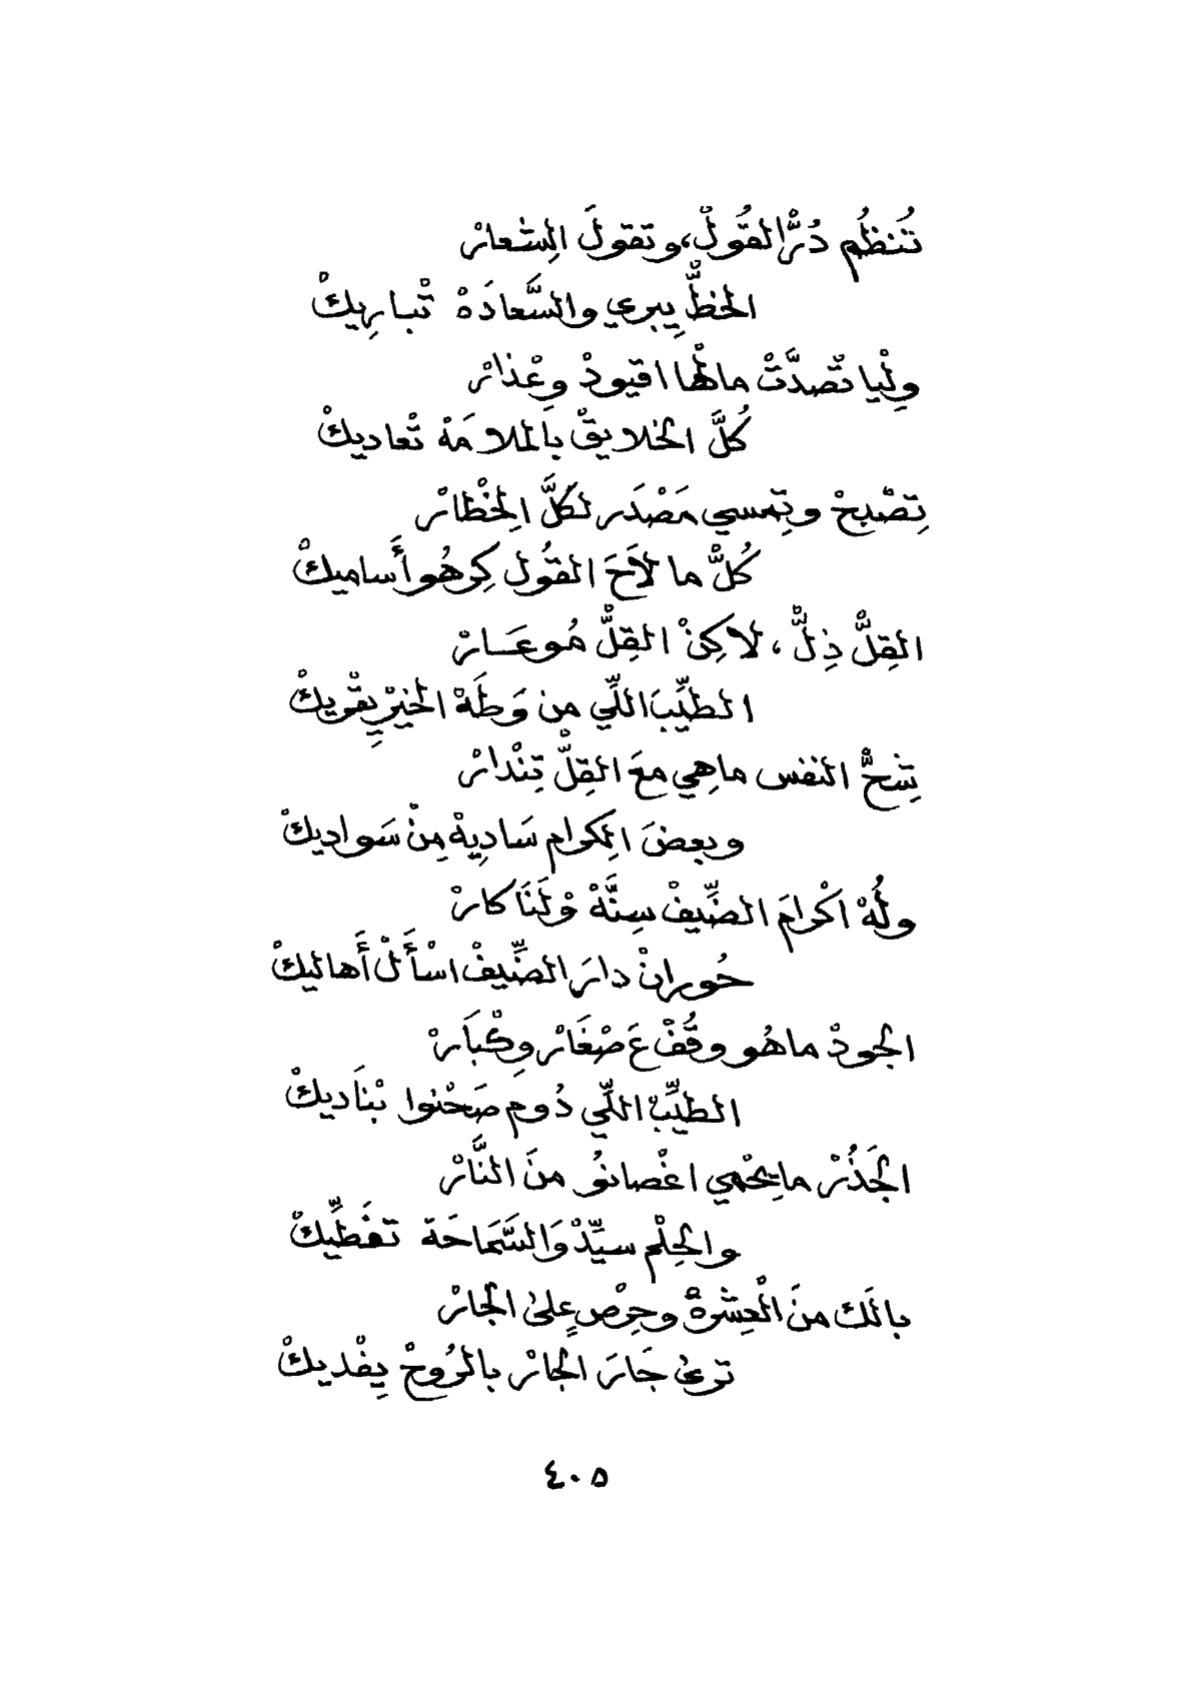 تُنظُم دُرَّ القُولْ، وتقولَ الِشعارْ
الحظِّ يبري والسَّعادَهْ تْباريكْ
ولْيا تْصدَّتْ مالْها اقيودْ وعْذارْ
كُلَّ الخلايقْ بالملامَهْ تْعاديكْ
تِصْبِحْ وتِمسي مَصْدَر لكُلَّ الِخْطارْ
كُلْ ما لاَحَ القُول كِرهُوا أَساميكْ
القِلّْ ذِلّْ، لاكِنْ القِلّْ مُو عَارْ
الطيِّبَ اللّي من وَطَهْ الخيرْ يِقْويكْ
شِحّْ النفس ماهِي معَ القِلّْ تِنْدارْ
وبعضَ الِكرام سَادِيهْ مِنْ سَواديكْ
ولُهْ اكْرامَ الضِّيفْ سِنَّهْ وْلَنَا كارْ
حُورانْ دارَ الضِّيفْ اسْأَلْ أَهاليكْ
الجودْ ماهُو وقُفْ عَ صْغَارْ وِكْبَارْ
الطيِّبْ اللّي دُوم صَحْنوا بْنَاديكْ
الجَذُرْ مايِحْمي اغْصانوُ منَ النَّارْ
والحِلْم سيِّدْ وَالسَّمَاحَة تغَطِّيكْ
بالَك منَ الْعِشرهْ وحِرْص عِلىٰ الجارْ
ترىٰ جَارَ الجارْ بالرُوحْ يِفْديكْ
٤٠٥